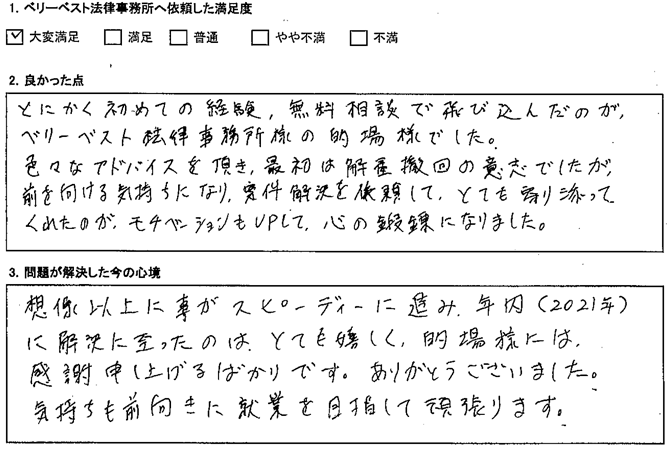 1. ベリーベスト法律事務所へ依頼した満足度
大変満足 満足 普通 やや不満 不満
2. 良かった点
とにかく初めての経験，無料相談で飛び込んだのが，
ベリーベスト法律事務所様の的場様でした。
色々なアドバイスを頂き，最初は解雇撤回の意志でしたが，
前を向ける気持ちになり，案件解決を依頼して，とても寄り添って
くれたのが，モチベーションもUPして，心の鍛錬になりました。
3. 問題が解決した今の心境
想像以上に事がスピーディーに進み．年内（2021年）
に解決に至ったのは，とても嬉しく，的場様には，
感謝申し上げるばかりです。ありがとうございました。
気持ちも前向きに就業を目指して頑張ります。